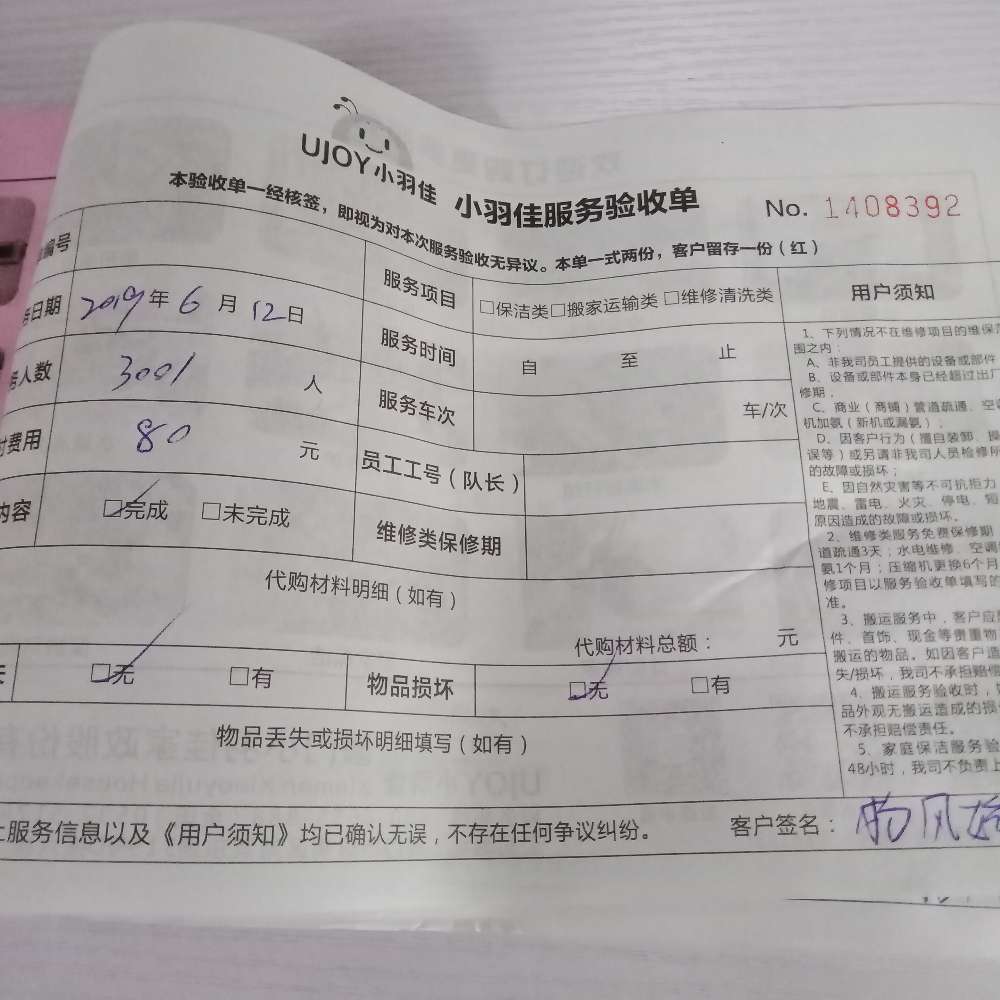 UJOY小羽佳 小羽佳服务验收单 No. 1408392
本验收单一经核签，即视为对本次服务验收无异议。本单一式两份，客户留存一份（红）
编号
服务项目 □保洁类□搬家运输类□维修清洗类
日期 2019年6月12日
服务时间 自 至 止
人数 3001 人
服务车次 车/次
费用 80 元
员工工号（队长）
内容 □完成 □未完成
维修类保修期
代购材料明细（如有）
代购材料总额： 元
□无 □有 物品损坏 □无 □有
物品丢失或损坏明细填写（如有）
服务信息以及《用户须知》均已确认无误，不存在任何争议纠纷。 客户签名：
用户须知
1、下列情况不在维修项目的维保范
围之内：
A、非我司员工提供的设备或部件
B、设备或部件本身已经超过出厂
修期．
C、商业（商铺）管道疏通、空
机加氨（新机或漏氨）；
D、因客户行为（擅自装卸、操
误等）或另请非我司人员检修所
的故障或损坏；
E、因自然灾害等不可抗拒力
地震、雷电、火灾、停电、短
原因造成的故障或损坏。
2、维修类服务免费保修期
道疏通3天；水电维修、空调
氨1个月；压缩机更换6个月
修项目以服务验收单填写的
准。
3、搬运服务中，客户应
件、首饰、现金等贵重物
搬运的物品。如因客户造
失/损坏，我司不承担赔偿
4、搬运服务验收时，
品外观无搬运造成的损
不承担赔偿责任。
5、家庭保洁服务验
48小时，我司不负责上